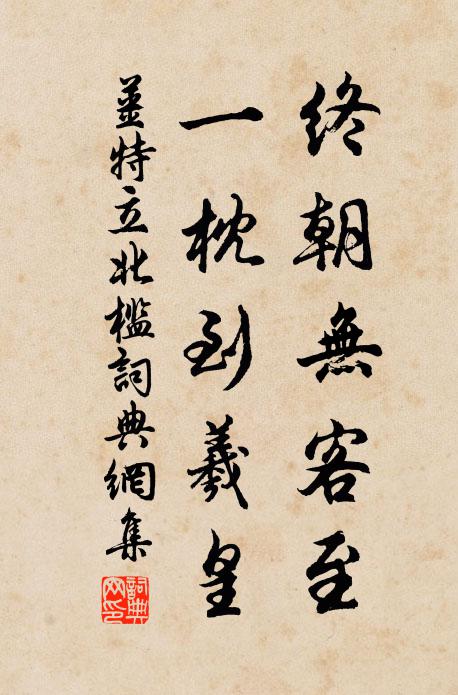 終朝無客至
一枕到羲皇
姜特立北檻詞典網集
詞典网印